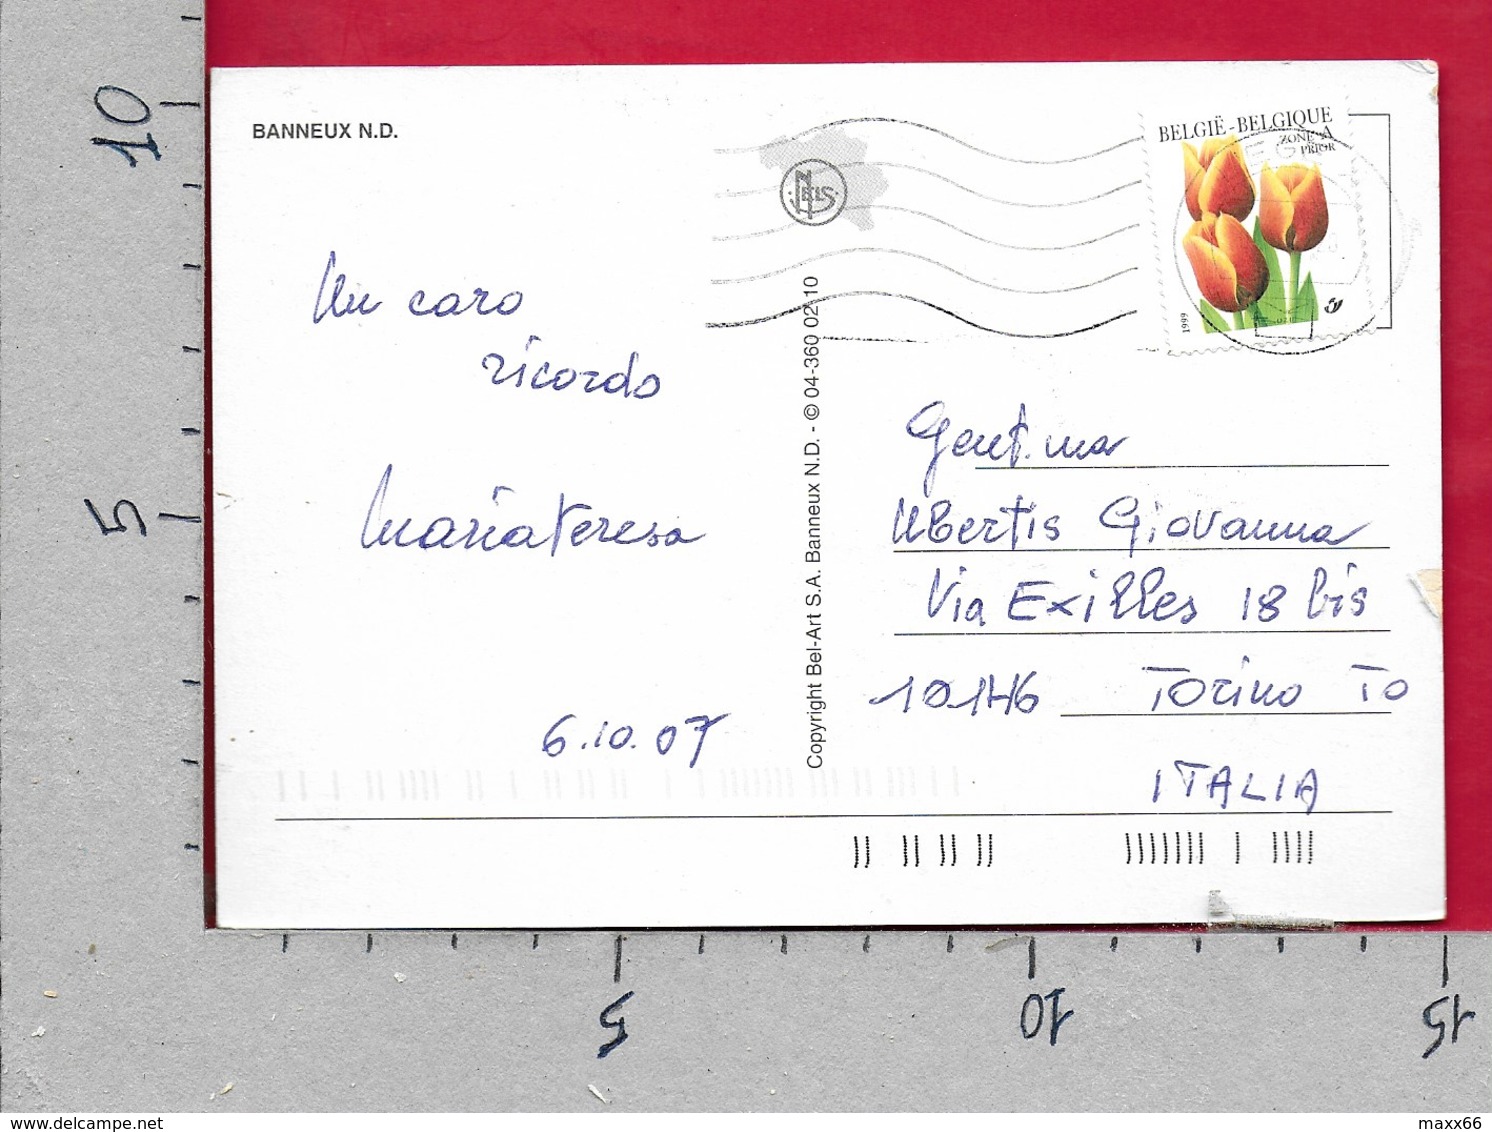 BANNEUX N.D.
NELS
BELGIË-BELGIQUE
ZONE A
PRIOR
1999
Un caro
ricordo
Mariateresa
6.10.07
Copyright Bel-Art S.A. Banneux N.D. - © 04-360 02 10
Gent.ma
Ubertis Giovanna
Via Exilles 18 bis
10146 Torino TO
ITALIA
10
5
5
10
15
delcampe.net
maxx66